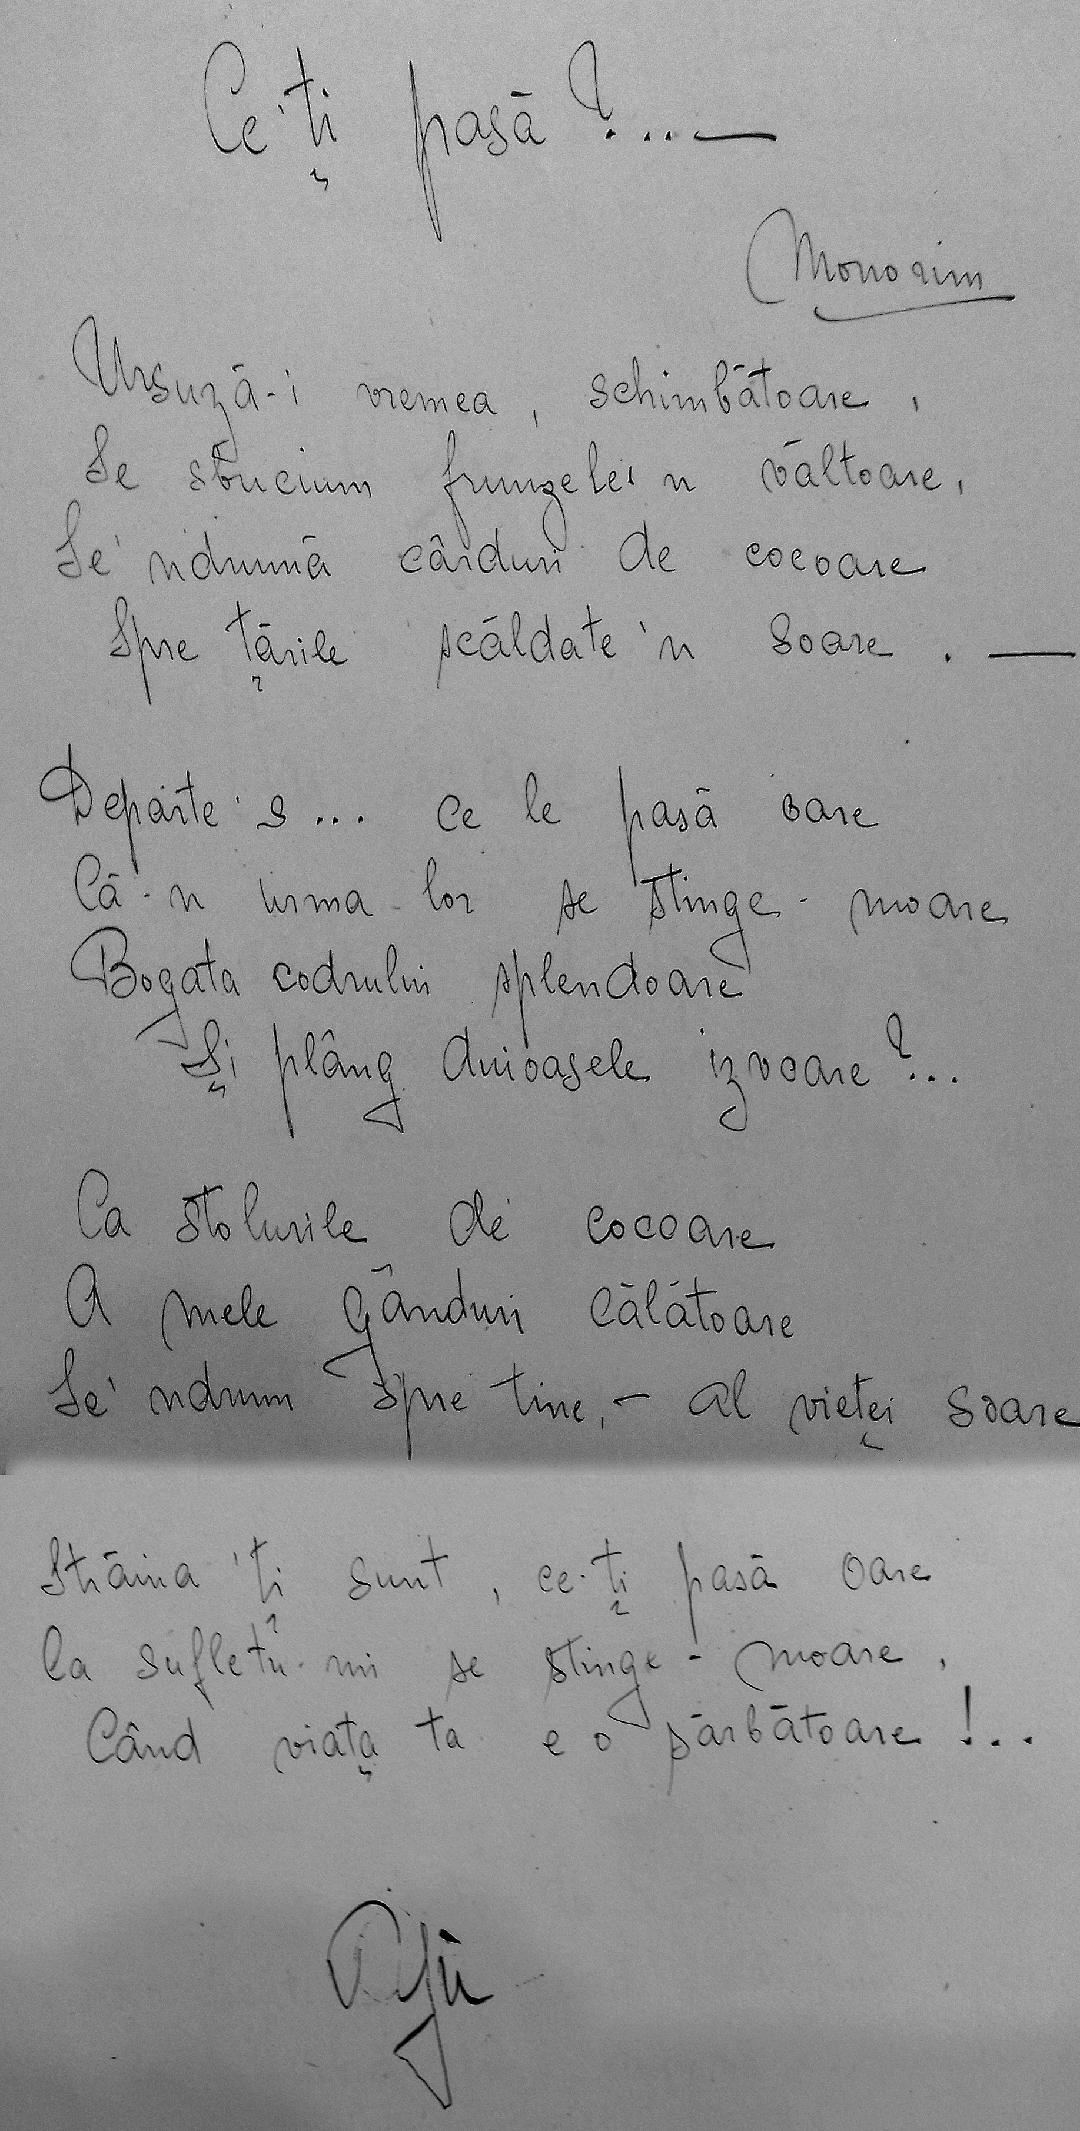 Ce'ți pasă ?...—
Monorim
Ursuză-i vremea, schimbătoare,
Se sbucium frunzele'n vâltoare,
Se'ndrumă cârduri de cocoare
Spre țările scăldate'n soare. —
Departe's... ce le pasă oare
Că-n urma lor se stinge-moare
Bogata codrului splendoare
Și plâng duioasele izvoare ?...
Ca stolurile de cocoare
A mele gânduri călătoare
Se'ndrum spre tine,- al vieței soare
Străina'ți sunt, ce-ți pasă oare
Ca sufletu-mi se stinge-moare,
Când viața ta e o sărbătoare !...